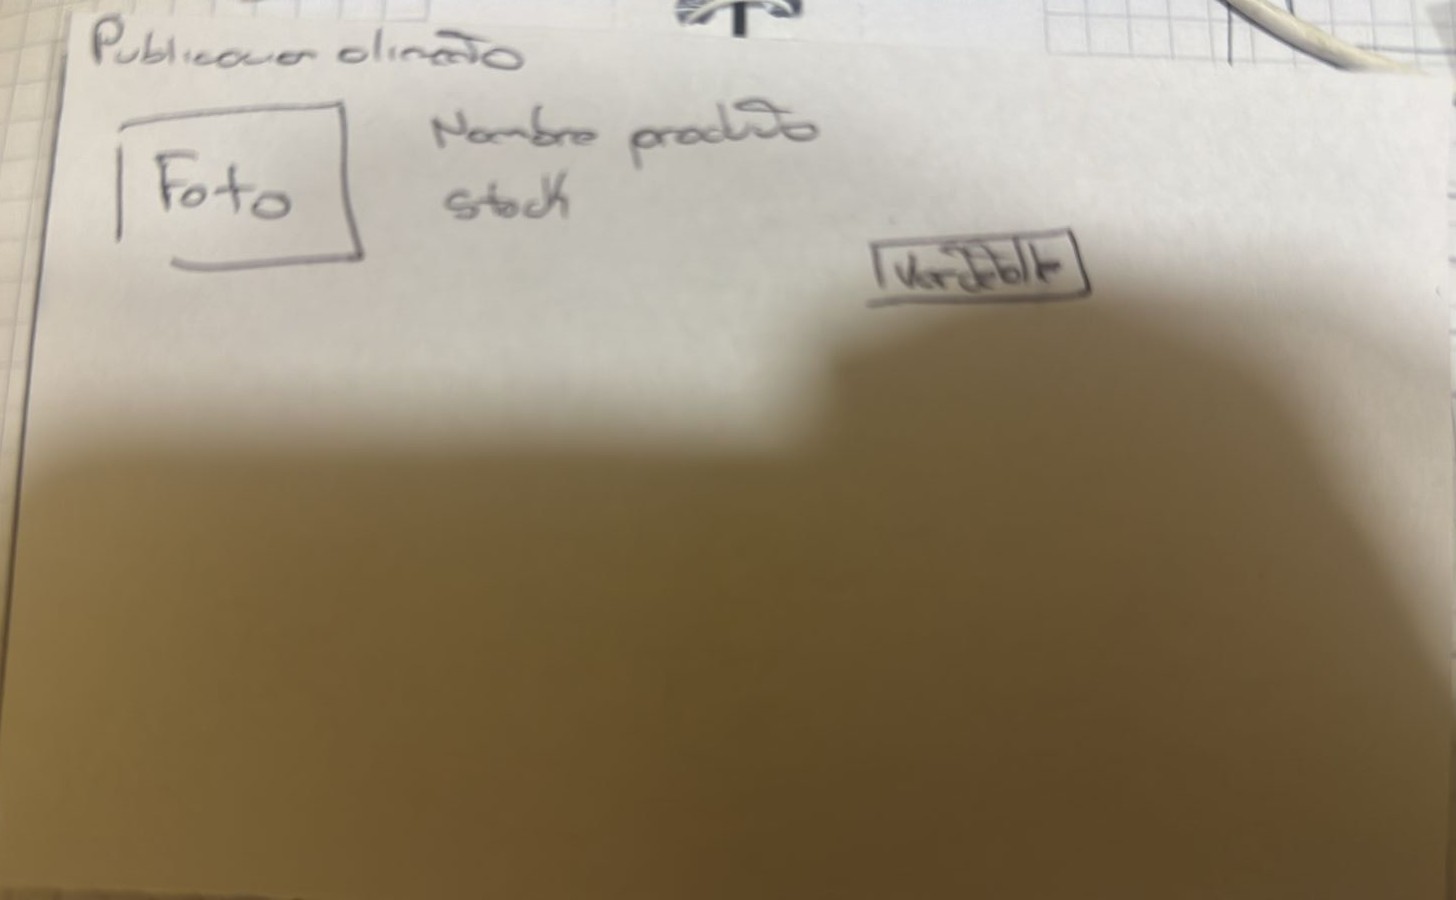 Publicacion alimento
Foto
Nombre producto
stock
Ver detalle